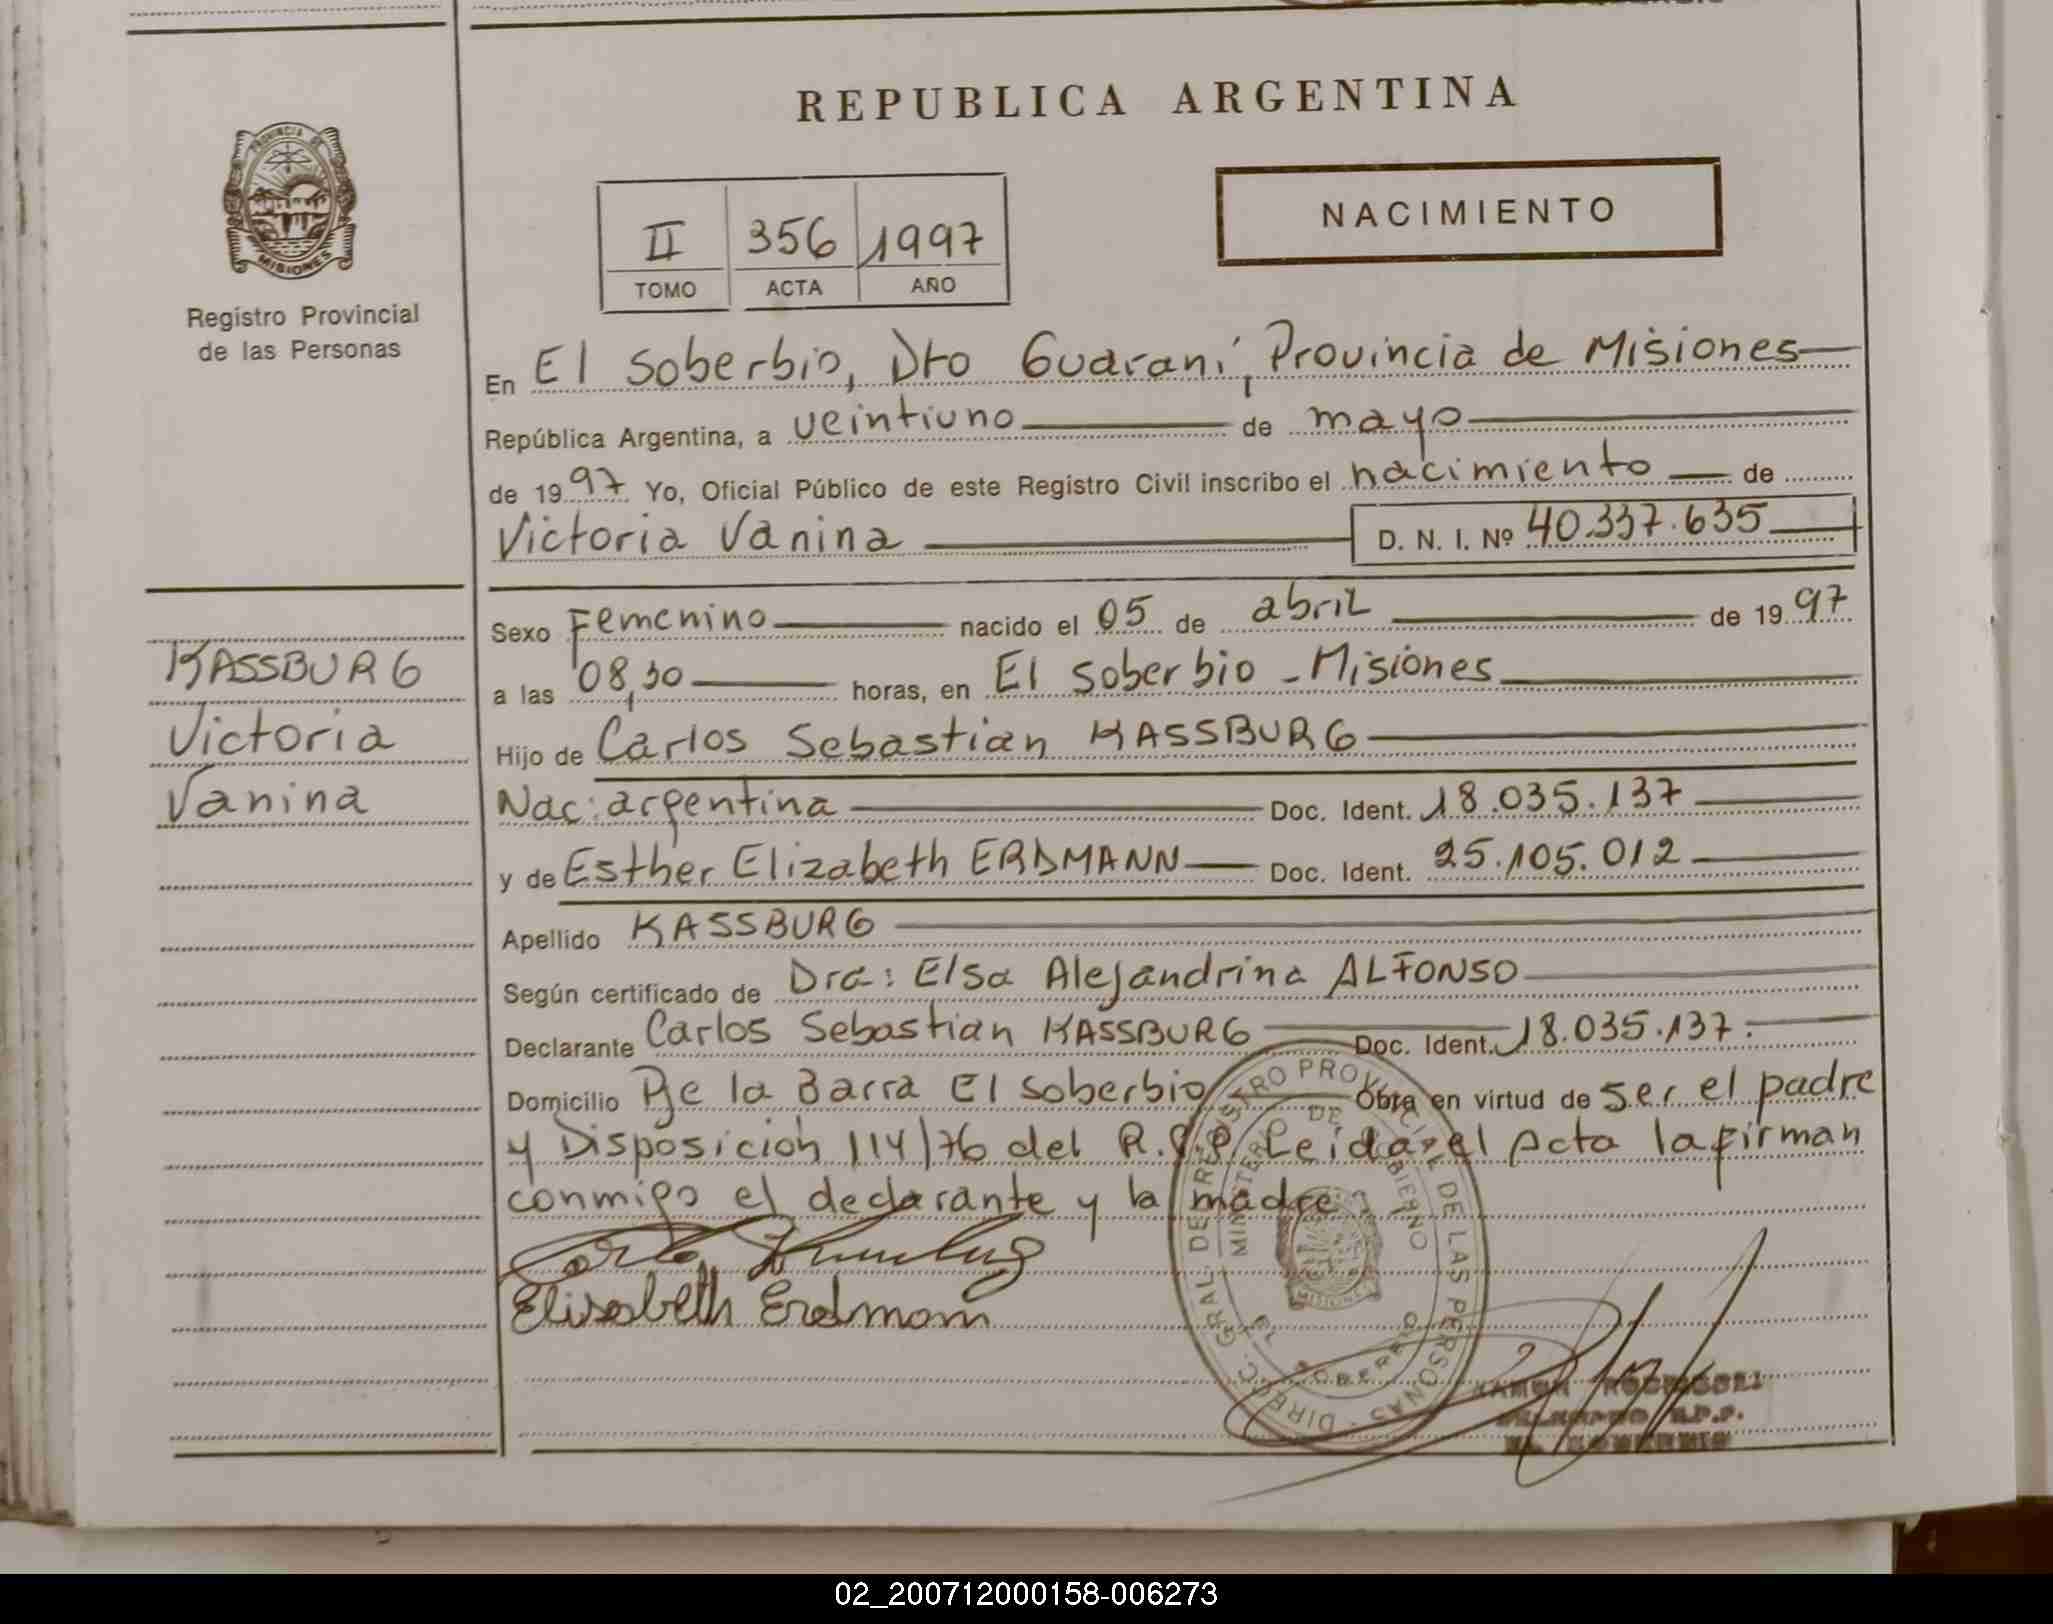 REPUBLICA ARGENTINA
PROVINCIA DE
MISIONES
Registro Provincial
de las Personas
NACIMIENTO
II 356 1997
TOMO ACTA AÑO
En El Soberbio, Dto Guaraní, Provincia de Misiones
República Argentina, a veintiuno de mayo
de 1997 Yo, Oficial Público de este Registro Civil inscribo el nacimiento de
Victoria Vanina D. N. I. Nº 40.337.635
Sexo Femenino nacido el 05 de abril de 1997
KASSBURG
Victoria
Vanina
a las 08,30 horas, en El Soberbio - Misiones
Hijo de Carlos Sebastian KASSBURG
Nac: argentina Doc. Ident. 18.035.137
y de Esther Elizabeth ERDMANN Doc. Ident. 25.105.012
Apellido KASSBURG
Según certificado de Dra: Elsa Alejandrina ALFONSO
Declarante Carlos Sebastian KASSBURG Doc. Ident. 18.035.137.
Domicilio Pje la Barra El Soberbio Obra en virtud de ser el padre
y Disposición 114/76 del R.P.P. Leida el Acta la firman
conmigo el declarante y la madre.
Elisabeth Erdmann
DIREC. GRAL. DE REGISTRO PROVINCIAL DE LAS PERSONAS
MINISTERIO DE GOBIERNO
EL SOBERBIO
MISIONES
02_200712000158-006273